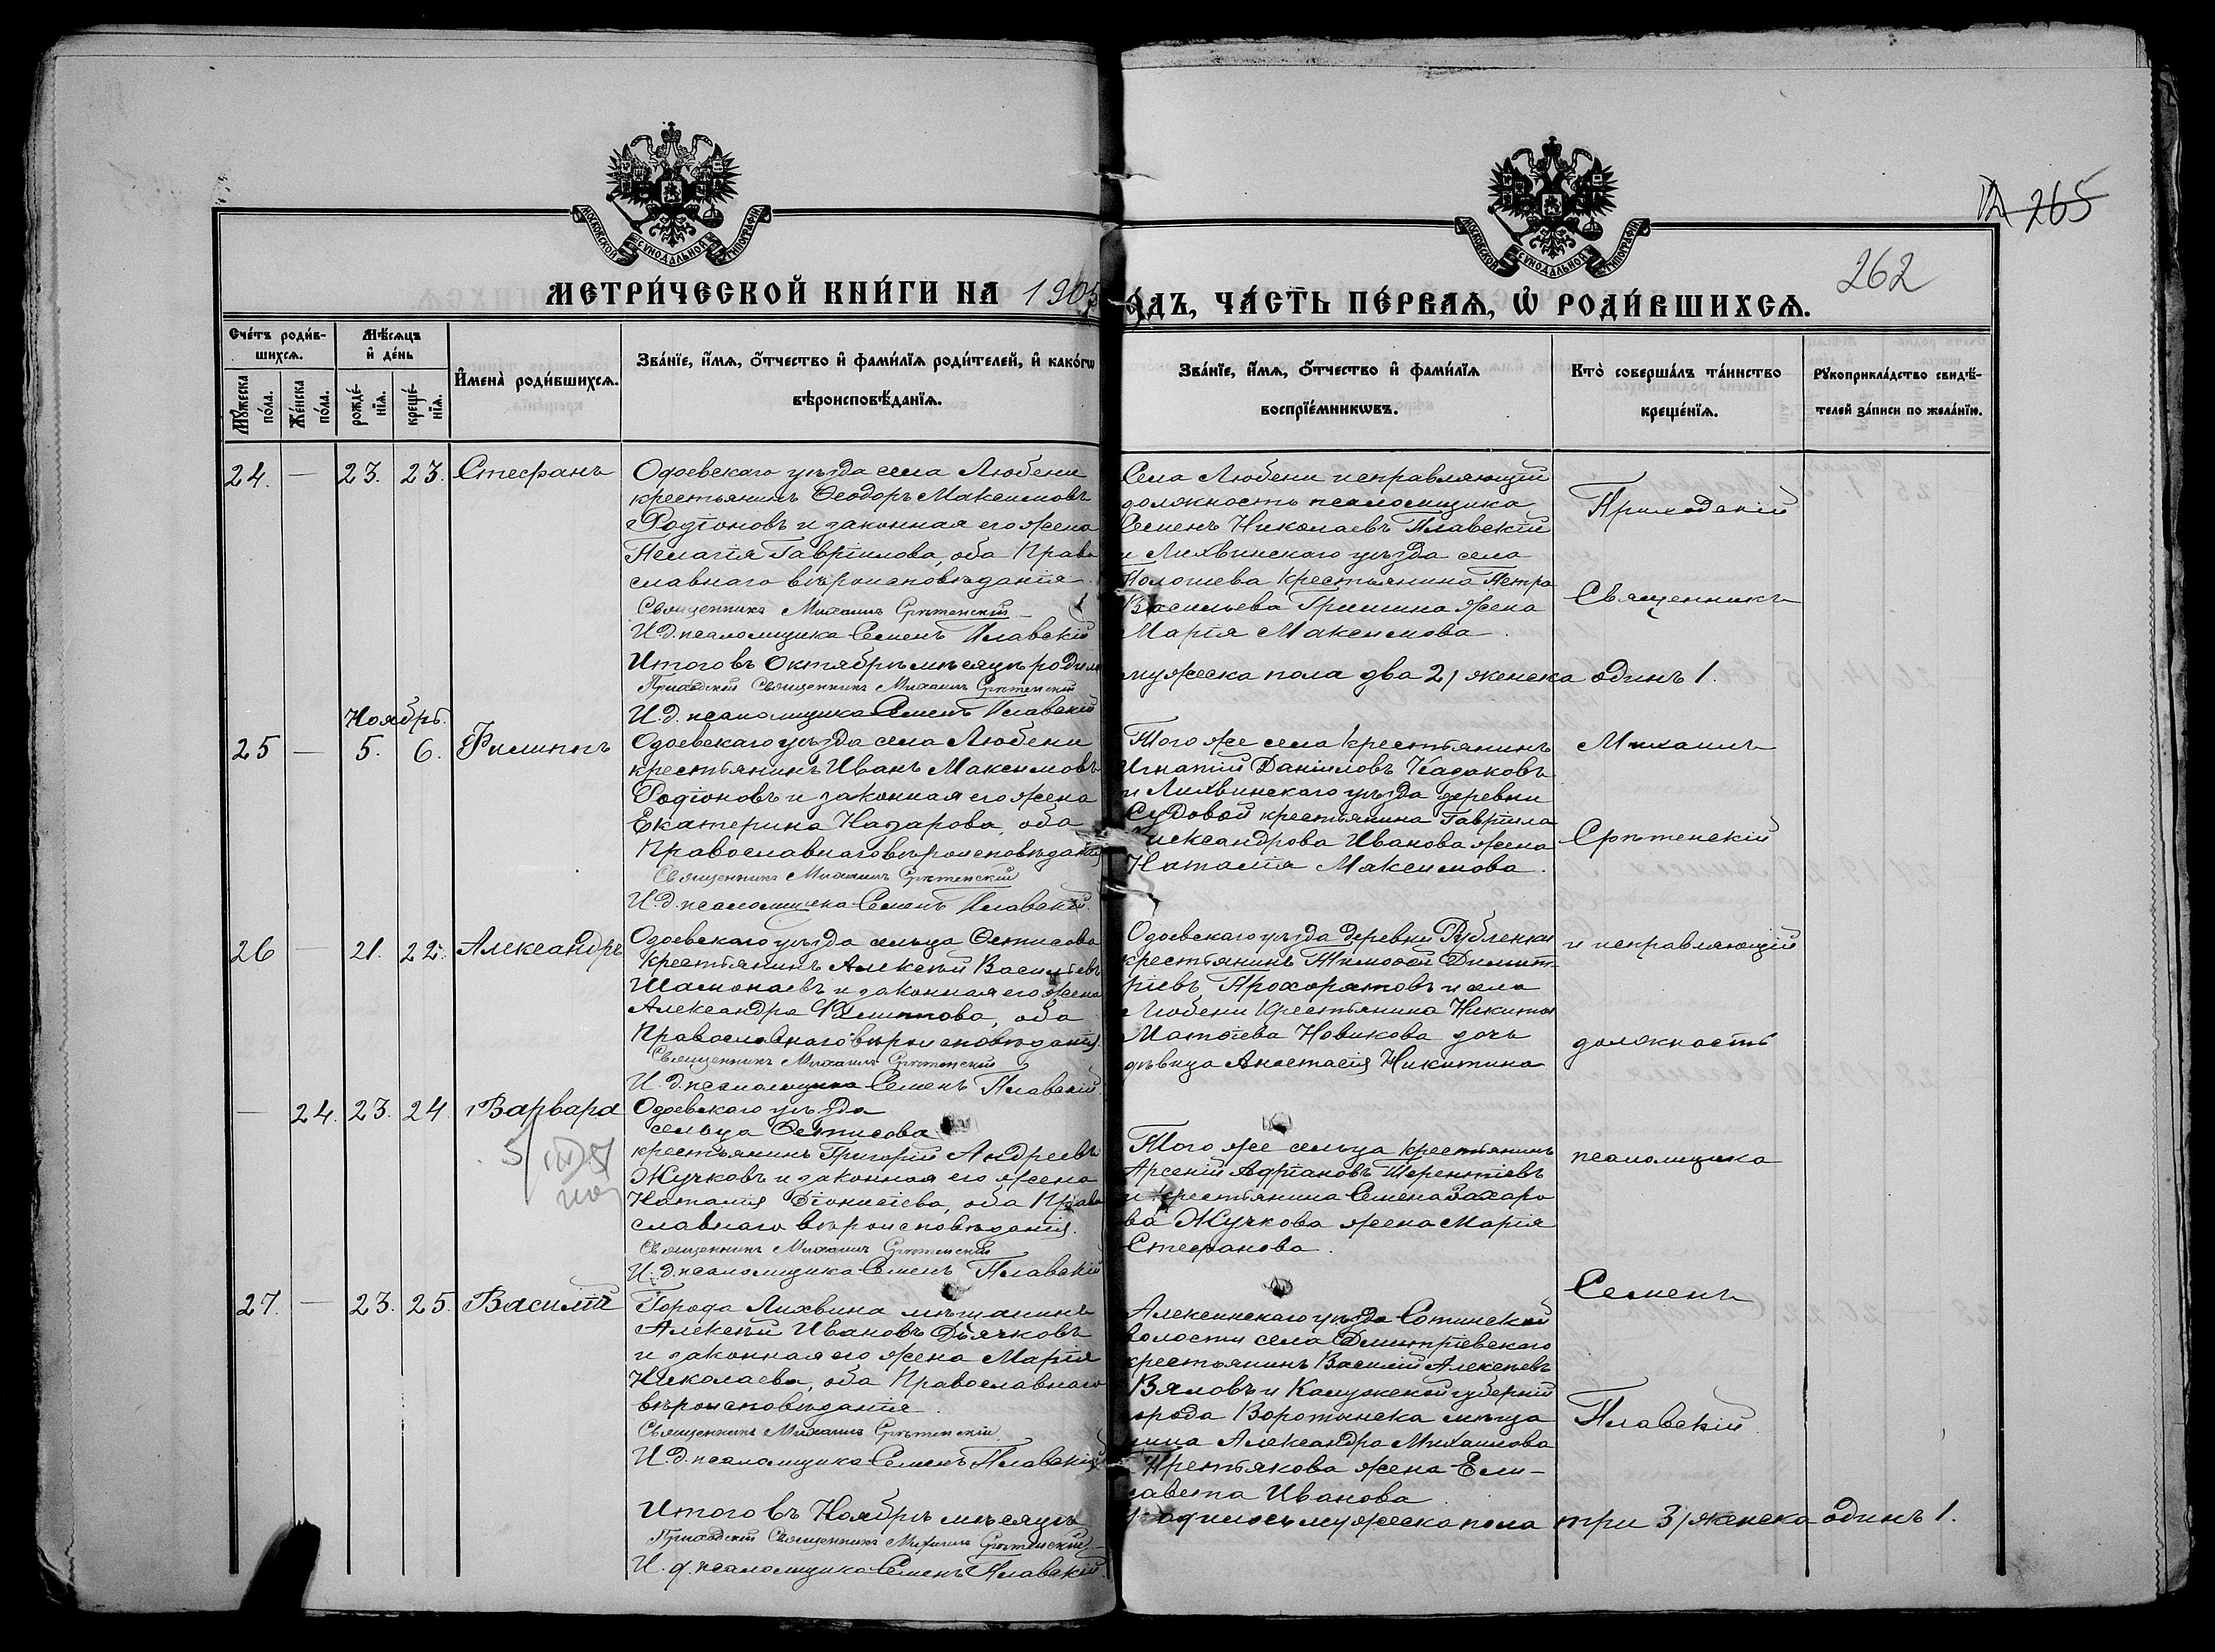 265
262
МОСКОВСКОЙ СѴНОДАЛЬНОЙ ТИПОГРАФІИ
МОСКОВСКОЙ СѴНОДАЛЬНОЙ ТИПОГРАФІИ
МЕТРИ́ЧЕСКОЙ КНИ́ГИ НА 1905
ДЪ, ЧА́СТЬ ПЕ́РВАѦ, Ѡ҆ РОДИ́ВШИХСѦ.
Сче́тъ роди́в-
шихсѧ.
Мꙋ́жеска по́ла.
Же́нска по́ла.
Мѣ́сѧцъ
и҆ де́нь
рожде́-
нїѧ.
креще́-
нїѧ.
И҆мена̀ роди́вшихсѧ.
Зва́нїе, и҆́мѧ, ѻ҆́тчество и҆ фами́лїѧ роди́телей, и҆ како́гѡ
вѣроисповѣ́данїѧ.
Зва́нїе, и҆́мѧ, ѻ҆́тчество и҆ фами́лїѧ
воспрїе́мникѡвъ.
Кто̀ соверша́лъ та́инство
креще́нїѧ.
Рꙋкоприкла́дство свидѣ́-
телей за́писи по жела́нїю.
24. — 23. 23. Стефанъ
Одоевскаго уѣзда села Любени
крестьянинъ Ѳеодоръ Максимовъ
Родіоновъ и законная его жена
Пелагія Гавріилова, оба Право
славнаго вѣроисповѣданія.
Священникъ Михаилъ Срѣтенскій
И.д. псаломщика Семенъ Плавскій
Села Любени исправляющій
должность псаломщика
Семенъ Николаевъ Плавскій
и Лихвинскаго уѣзда села
крестьянина Петра
Васильева Гришина жена
Марія Максимова.
Приходскій
Священникъ
Итого въ Октябрѣ мѣсяцѣ роди
мужеска пола два 2, женска одинъ 1.
Приходскій Священникъ Михаилъ Срѣтенскій
И.д. псаломщика Семенъ Плавскій
Ноябрь.
25 — 5. 6. Филиппъ
Одоевскаго уѣзда села Любени
крестьянинъ Иванъ Максимовъ
Родіоновъ и законная его жена
Екатерина Назарова, оба
Православнаго вѣроисповѣданія
Священникъ Михаилъ Срѣтенскій
И.д. псаломщика Семенъ Плавскій.
Того же села крестьянинъ
Игнатій Даніиловъ Казаковъ
и Лихвинскаго уѣзда деревни
Судовой крестьянина Гавріила
Александрова Иванова жена
Наталія Максимова.
Михаилъ
Срѣтенскій
26 — 21. 22. Александръ
Одоевскаго уѣзда сельца
крестьянинъ Алексѣй Васильевъ
и законная его жена
Александра Филиппова, оба
Православнаго вѣроисповѣданія.
Священникъ Михаилъ Срѣтенскій
И.д. псаломщика Семенъ Плавскій.
Одоевскаго уѣзда деревни
крестьянинъ Тимоѳей Димит-
ріевъ и села
Любени крестьянина Никиты
Матѳіева Новикова дочь
дѣвица Анастасія Никитина
и исправляющій
должность
— 24. 23. 24. Варвара
Одоевскаго уѣзда
сельца
крестьянинъ Григорій Андреевъ
Жучковъ и законная его жена
Наталія Діонисіева, оба Право
славнаго вѣроисповѣданія.
Священникъ Михаилъ Срѣтенскій
И.д. псаломщика Семенъ Плавскій
Того же сельца крестьянинъ
Арсеній Адріановъ Терентіевъ
и крестьянина Семена Захаро
ва Жучкова жена Марія
Стефанова.
псаломщика
27. — 23. 25. Василій
Города Лихвина мѣщанинъ
Алексѣй Ивановъ Дьячковъ
и законная его жена Марія
Николаева, оба Православнаго
вѣроисповѣданія.
Священникъ Михаилъ Срѣтенскій.
И.д. псаломщика Семенъ Плавскій
Алексинскаго уѣзда Сотинской
волости села Дмитріевскаго
крестьянинъ Василій Алексѣевъ
Вяловъ и Калужской губерніи
города Воротынска мѣща
нина Александра Михаилова
Третьякова жена Ели-
савета Иванова.
Семенъ
Плавскій.
Итого въ Ноябрѣ мѣсяцѣ
родилось мужеска пола три 3, женска одинъ 1.
Приходскій Священникъ Михаилъ Срѣтенскій
И.д. псаломщика Семенъ Плавскій.